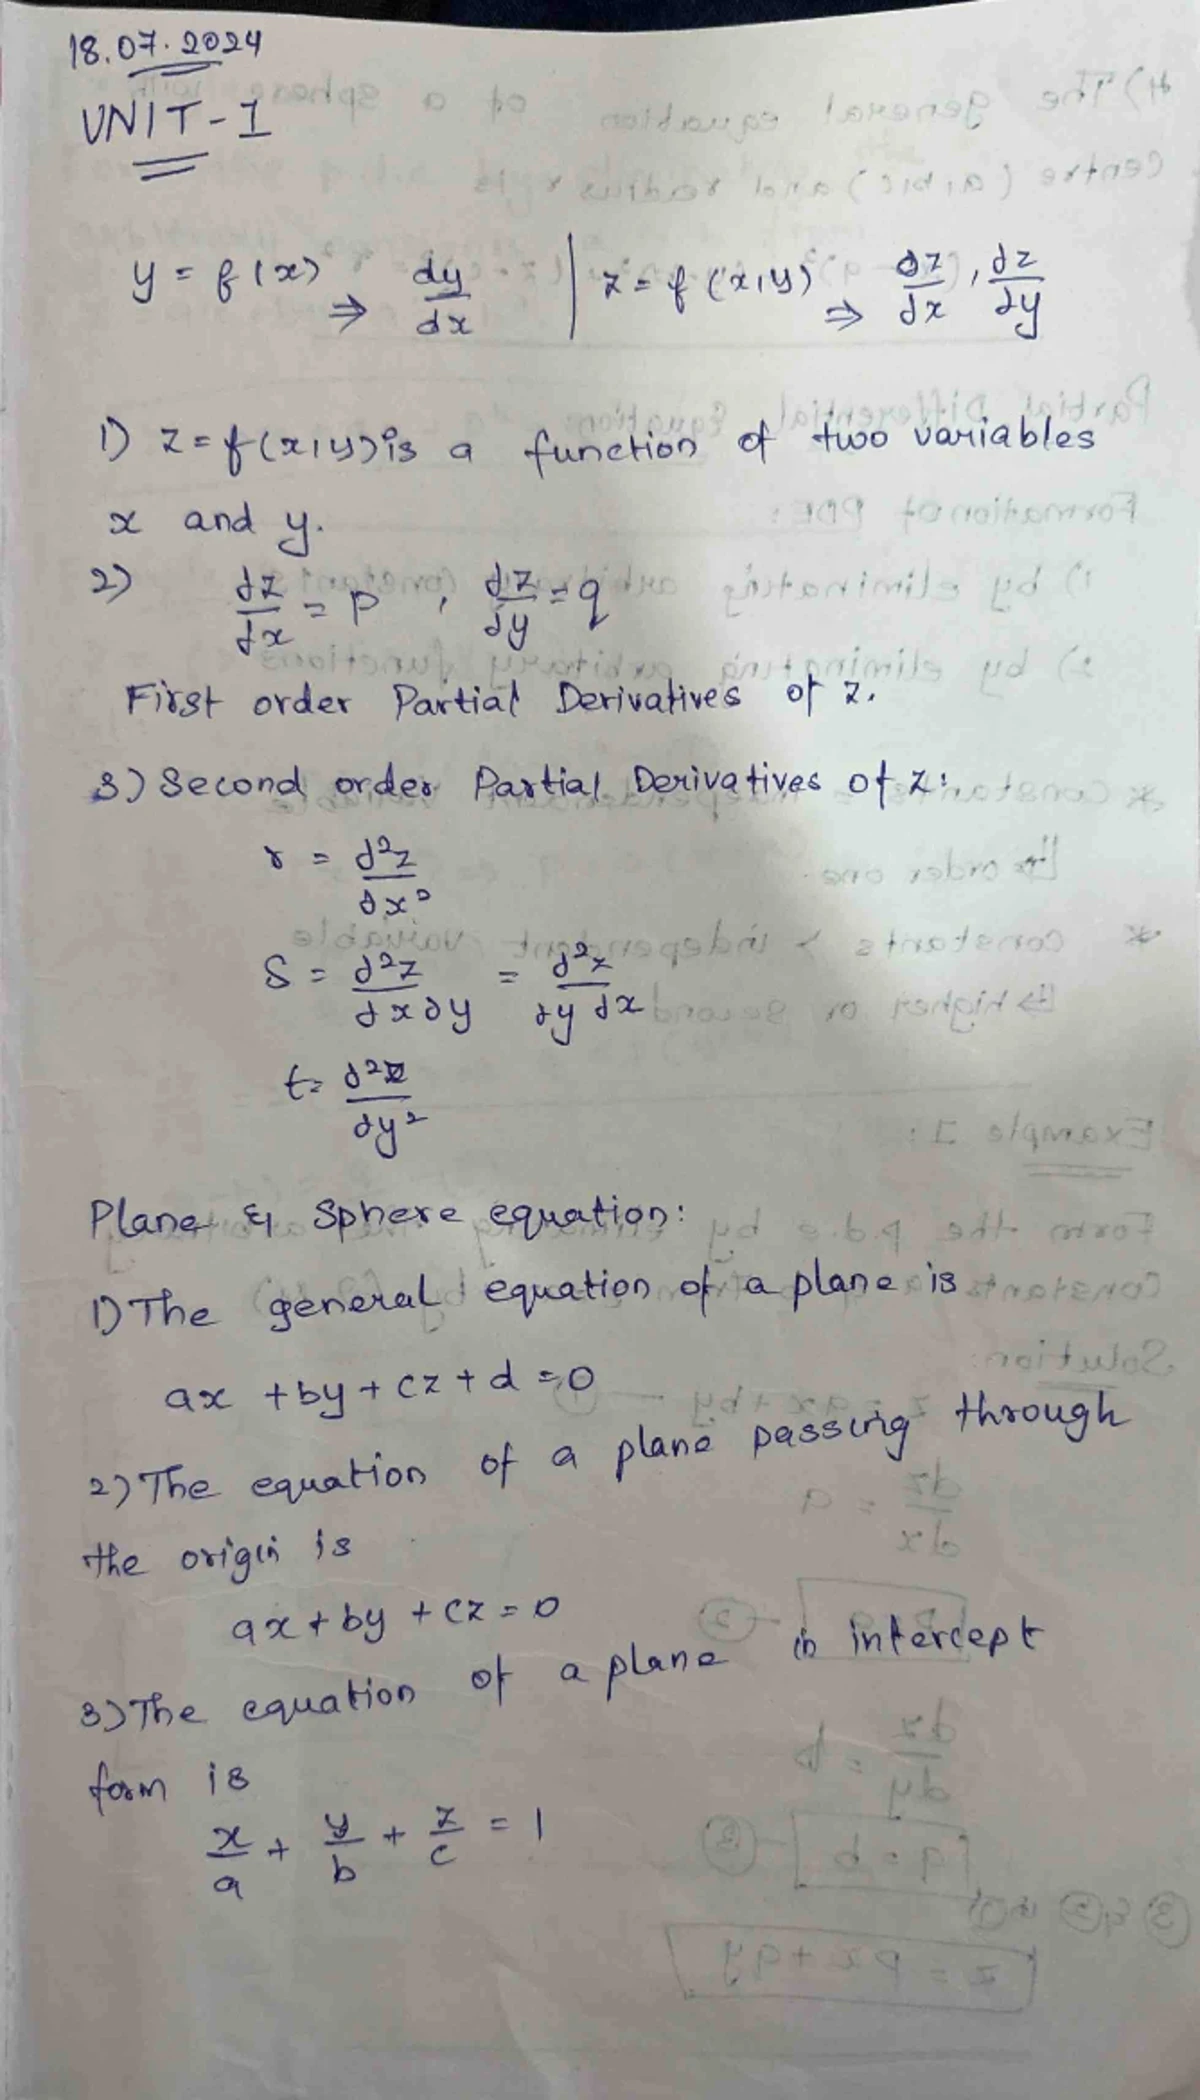 18.07.2024
UNIT-I
y = f(x) ⇒ dy/dx | z = f(x,y) ⇒ ∂z/∂x , ∂z/∂y
1) z = f(x,y) is a function of two variables
x and y.
2) ∂z/∂x = p , ∂z/∂y = q
First order Partial Derivatives of z.
3) Second order Partial Derivatives of z:
r = ∂²z/∂x²
S = ∂²z/∂x∂y = ∂²z/∂y∂x
t = ∂²z/∂y²
Plane & Sphere equation:
1) The general equation of a plane is
ax + by + cz + d = 0
2) The equation of a plane passing through
the origin is
ax + by + cz = 0
3) The equation of a plane in intercept
form is
x/a + y/b + z/c = 1